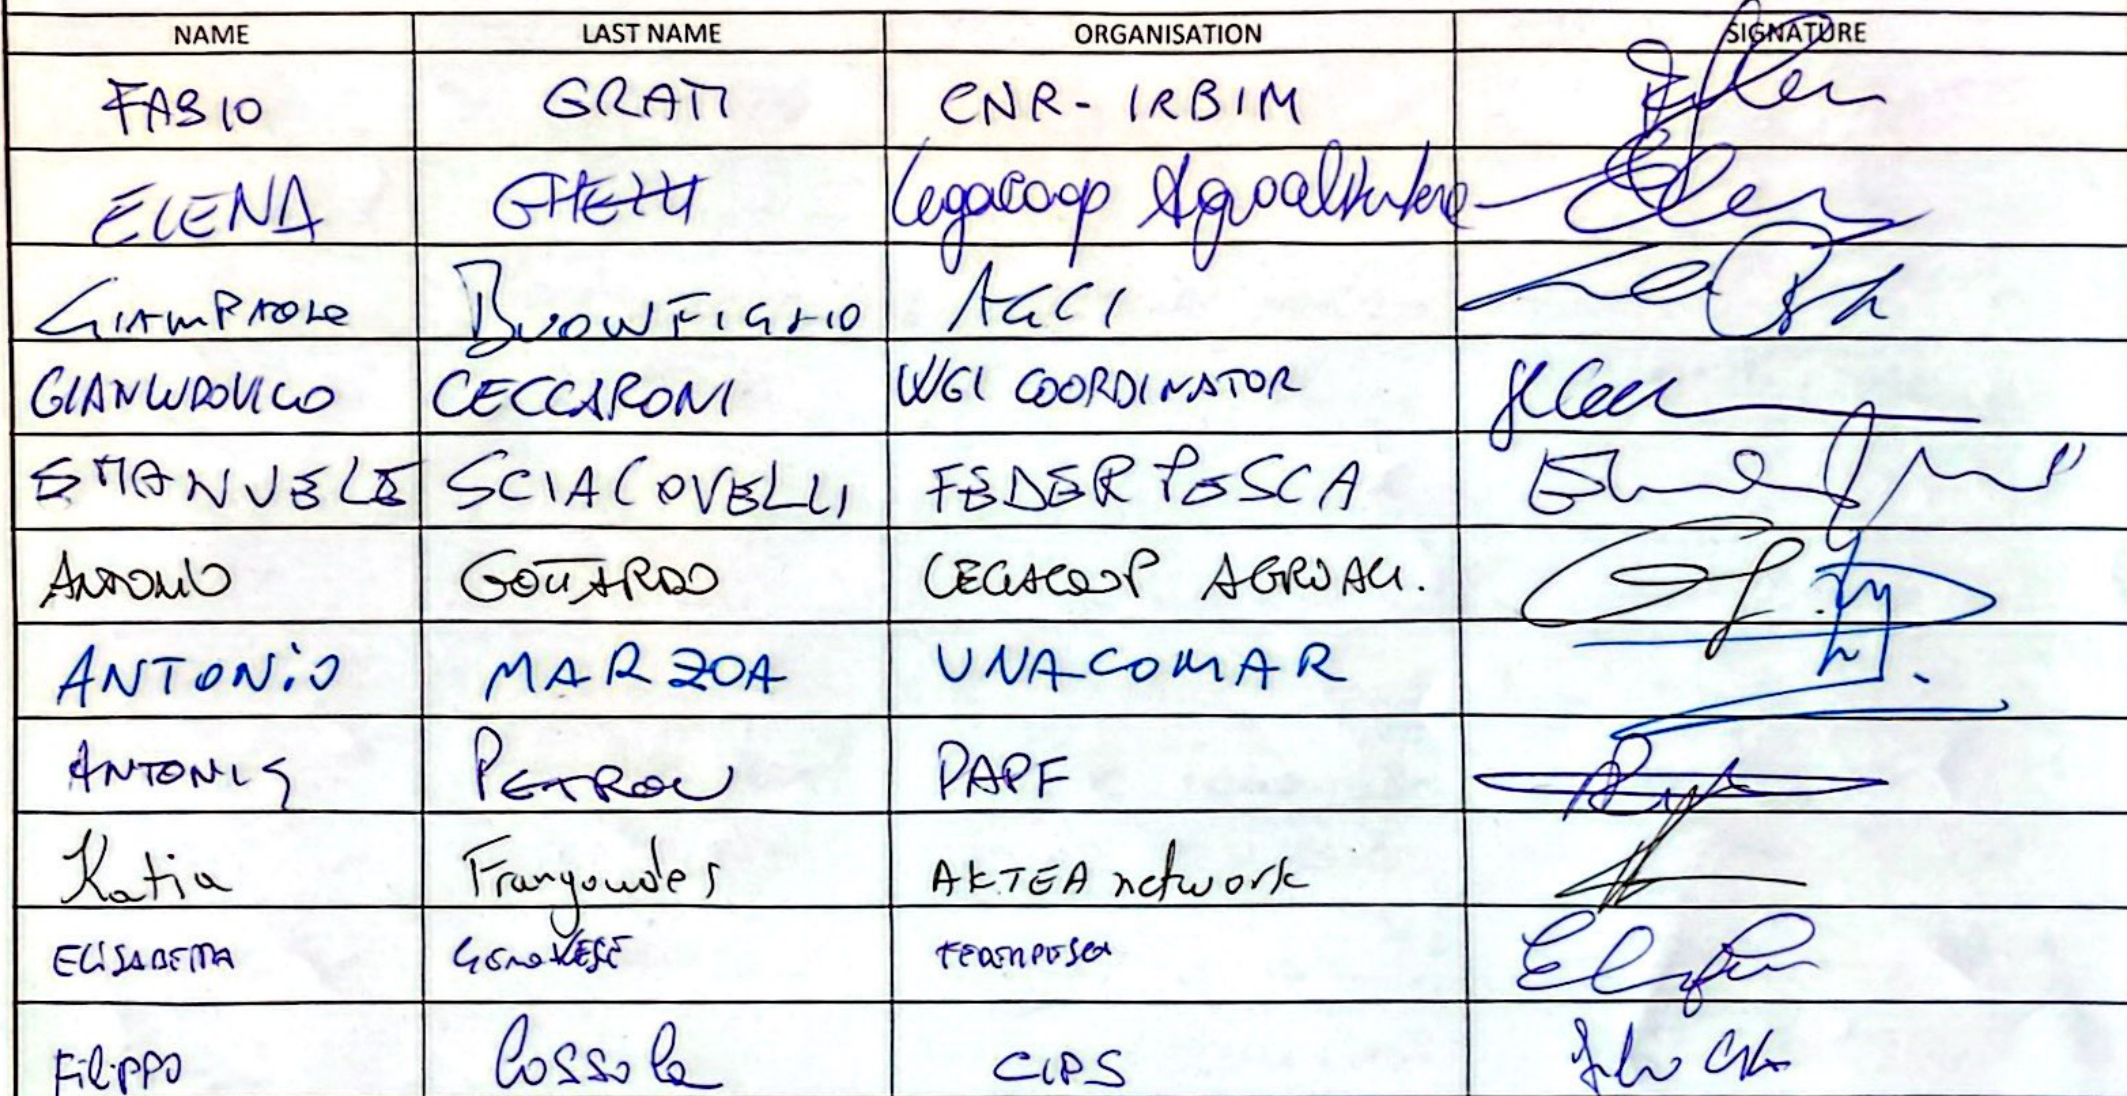 NAME LAST NAME ORGANISATION SIGNATURE
FABIO GRATI CNR-IRBIM
ELENA GHETTI Legacoop Agroalimentare
GIAMPAOLO BUONFIGLIO AGCI
GIANLUDOVICO CECCARONI WG1 COORDINATOR
EMANUELE SCIACOVELLI FEDERPESCA
ANTONIO GOTTARDO LEGACOOP AGROALI.
ANTONiO MARZOA UNACOMAR
ANTONIS PETROU PAPF
Katia Frangoudes AKTEA network
ELISABETTA GENOVESE FEDERPESCA
FiliPPO CIPS